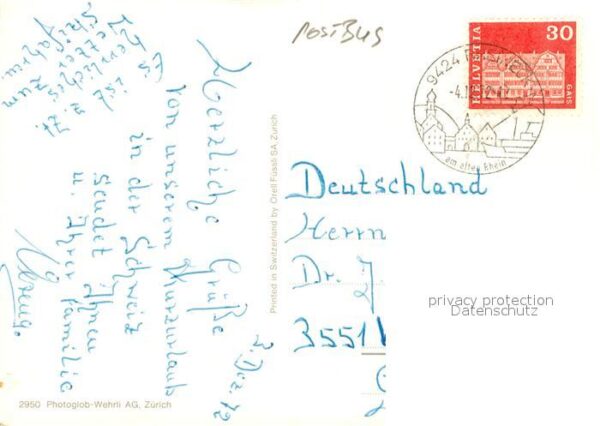 Es
ist
herrliches
Wetter u. zum
Skifahren
Herzliche Grüße
von unserem Kurzurlaub
in der Schweiz
sendet Ihnen
u. Ihrer Familie
3. Dez. 72
PostBus
HELVETIA
30
GAIS
9424
-4.1
am alten Rhein
Deutschland
Herrn
Dr. J
3551
privacy protection
Datenschutz
Printed in Switzerland by Orell Füssli SA, Zürich
2950 Photoglob-Wehrli AG, Zürich